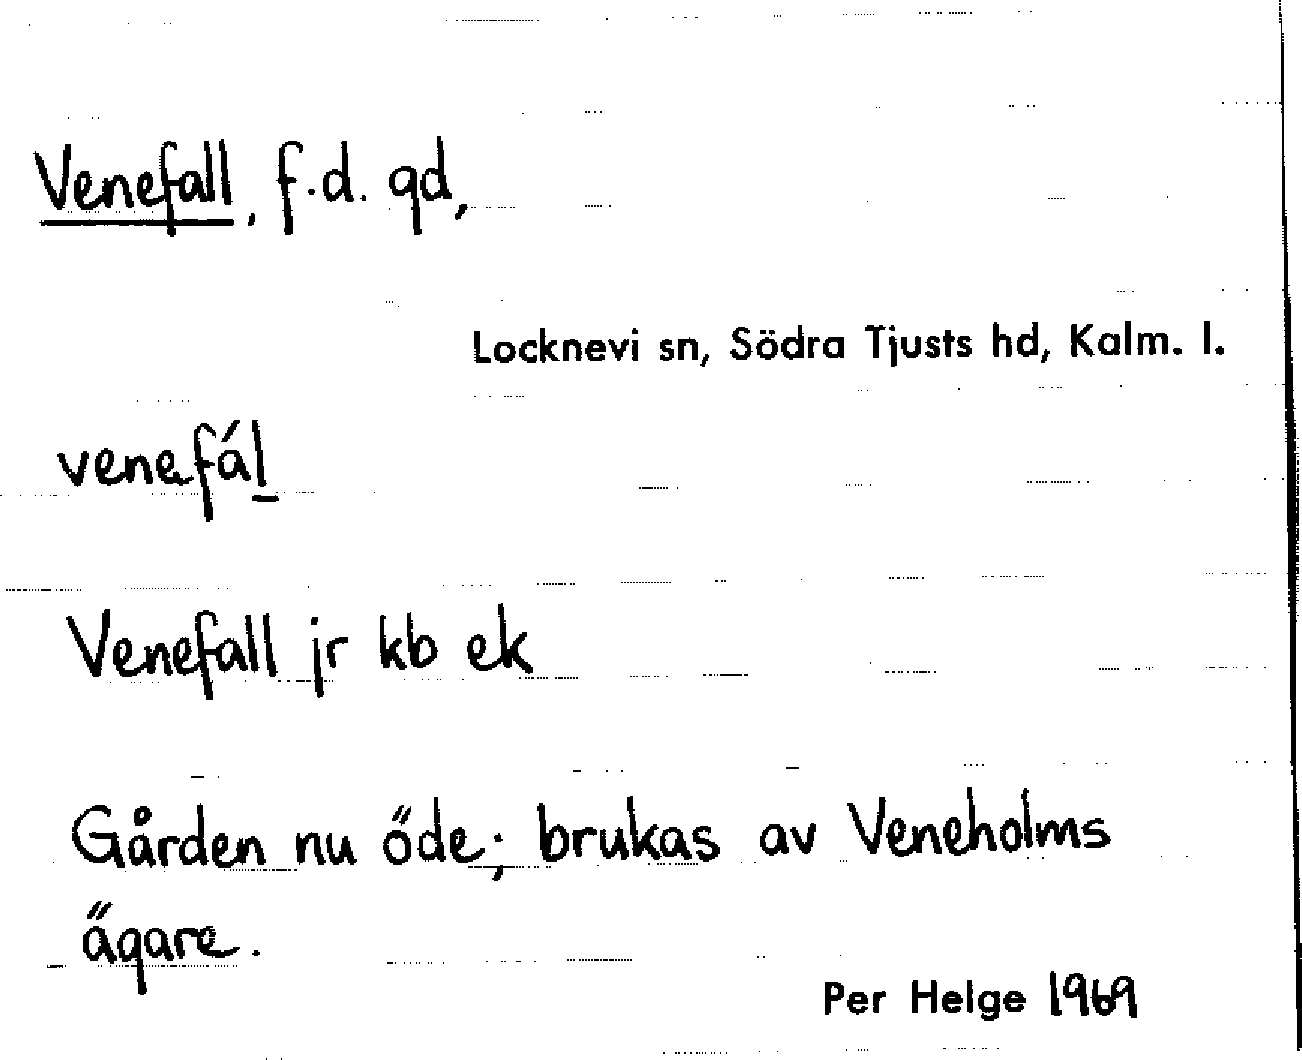 Venefall, f.d. gd,
Locknevi sn, Södra Tjusts hd, Kalm. l.
venefál
Venefall jr kb ek
Gården nu öde; brukas av Veneholms
ägare.
Per Helge 1969